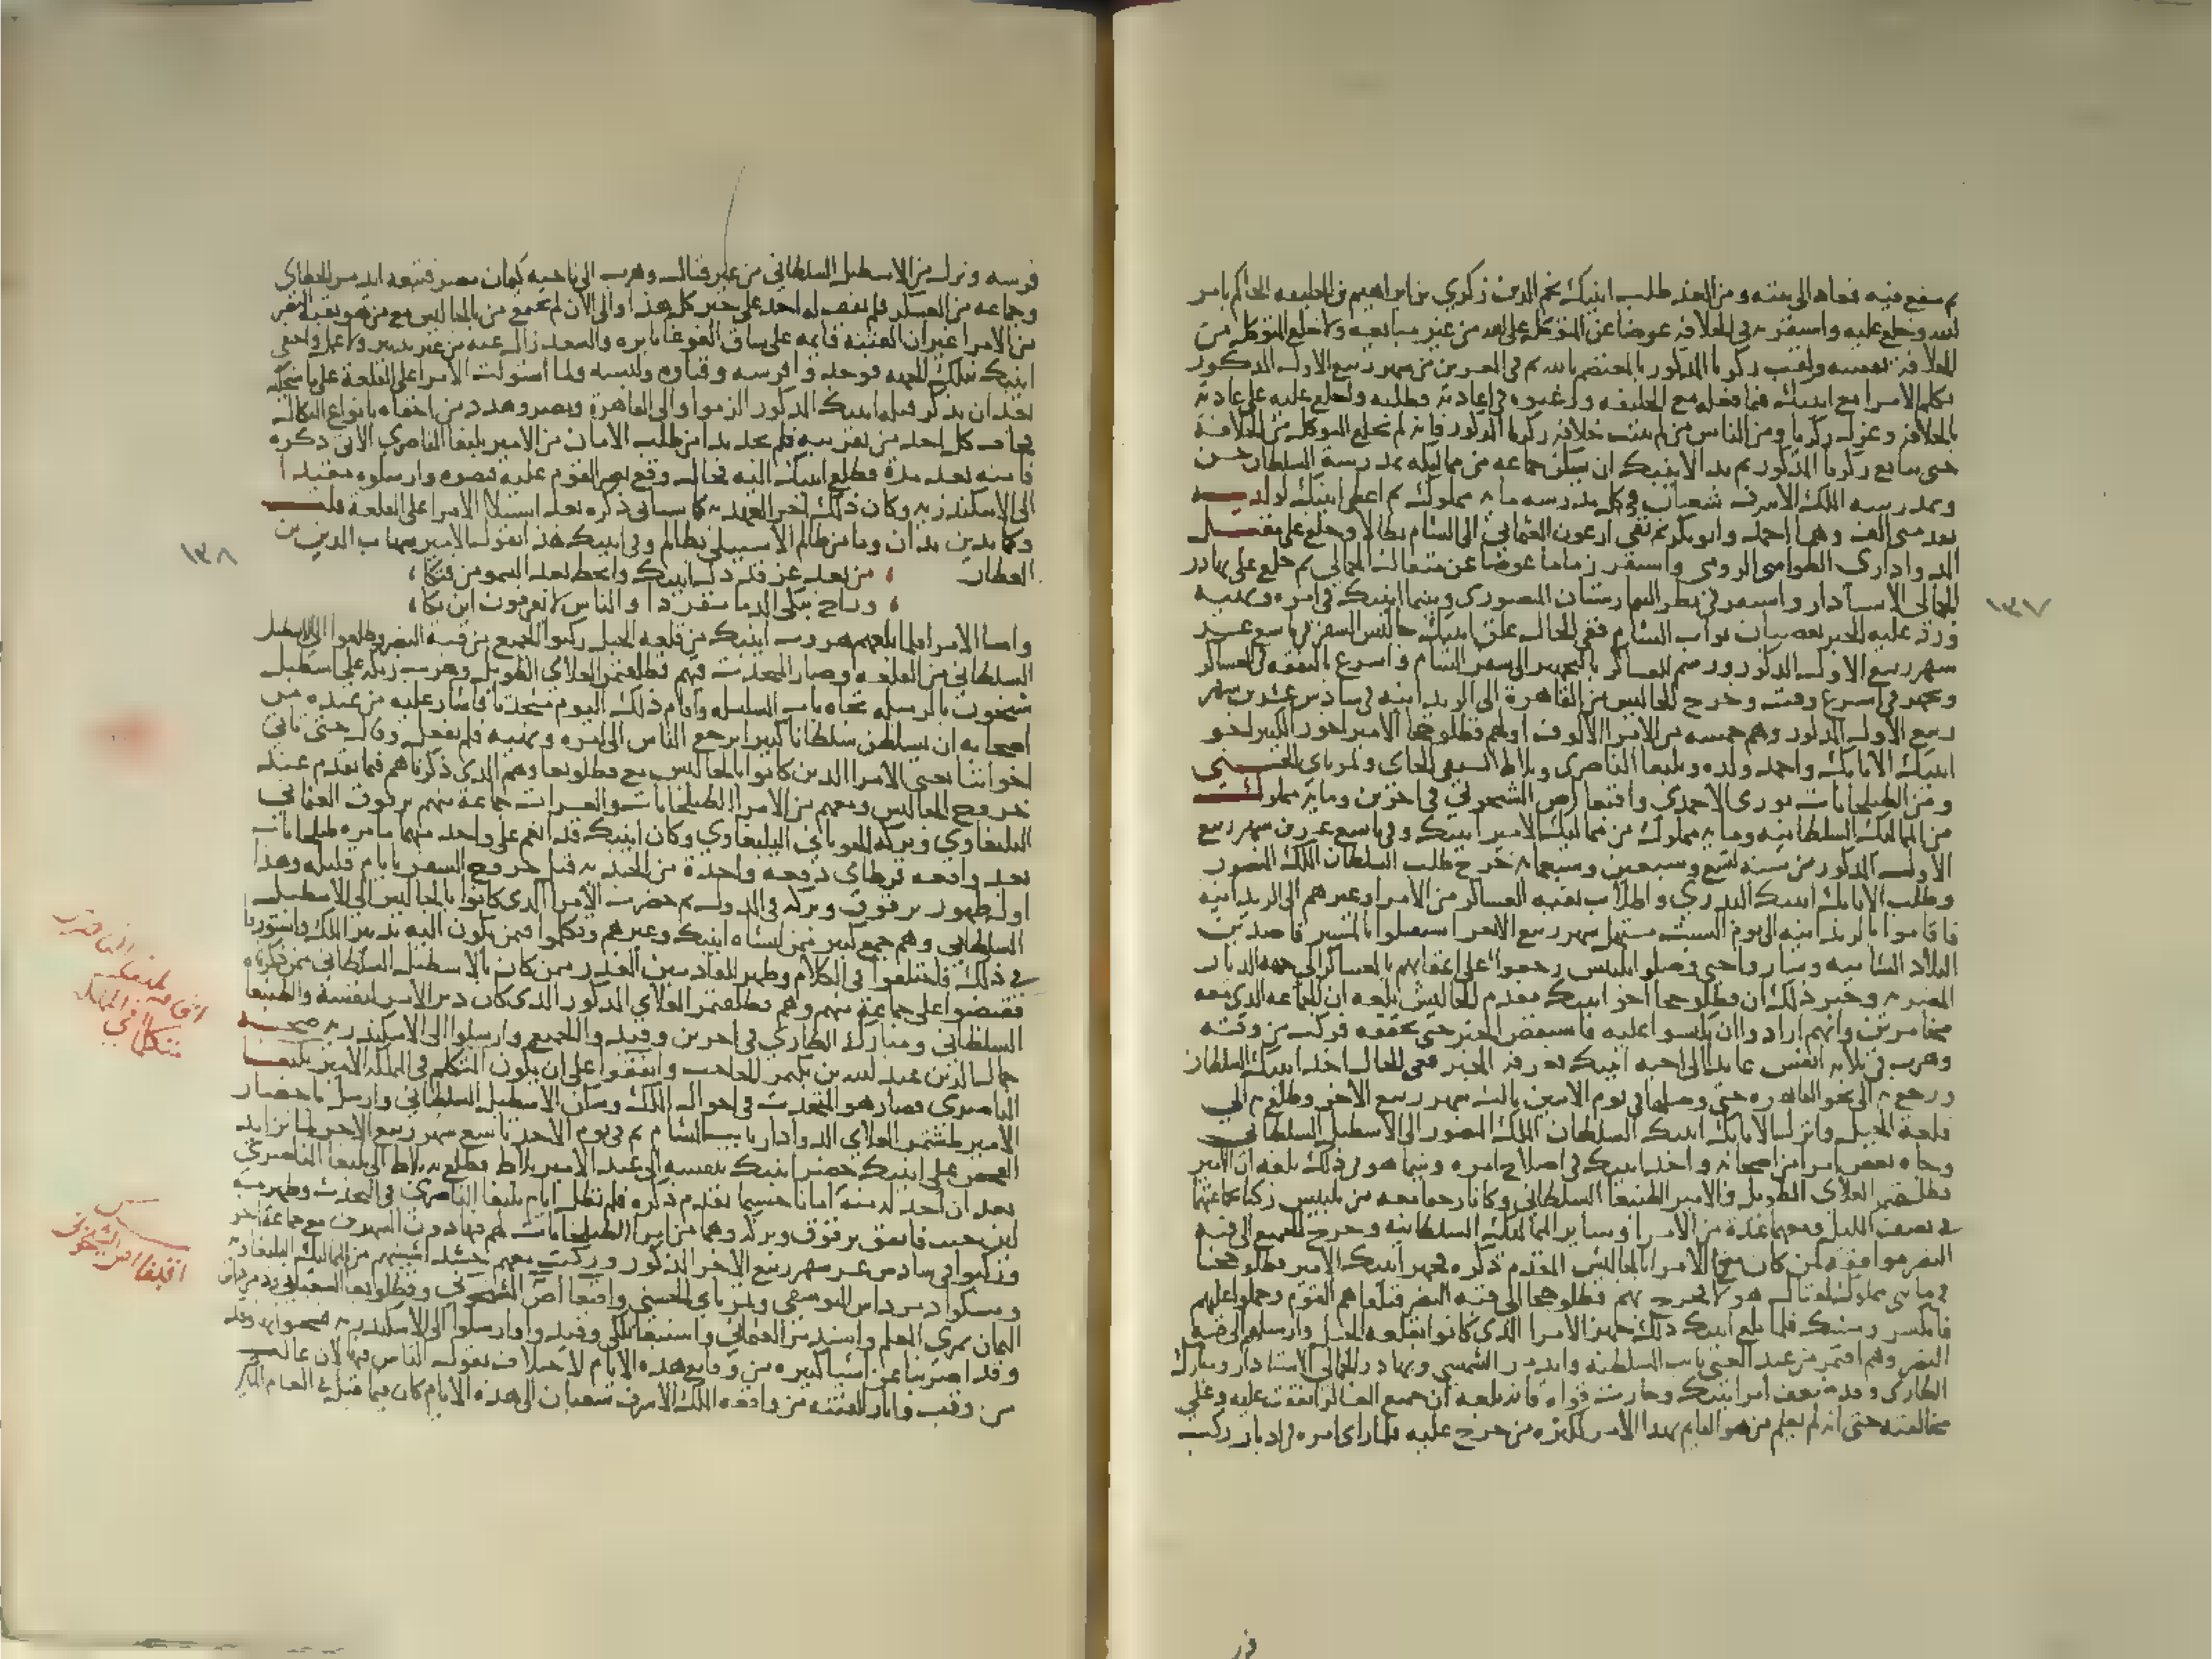 ثم شفع فيه فعاد الى بيته ومن الغد طلب اينبك نجم الدين زكري بن ابراهيم بن الخليفه الحاكم بامر
الله وخلع عليه واستقر به في الخلافه عوضا عن المتوكل على الله من غير مبايعه ولا خلع المتوكل من
الخلافه نفسه ولقب زكريا المذكور بالمعتصم بالله ثم في العشرين من شهر ربيع الاول المذكور
تكلم الامرا مع اينبك فيما فعله مع الخليفه ورغبوه في اعادته فطلبه واخلع عليه على عادته
بالخلافه وعزل زكريا ومن الناس من لم يثبت خلافه زكريا المذكور فانه لم يخلع المتوكل من الخلافة
حتى بايع زكريا المذكور ثم بدا لاينبك ان يسكن جماعه من مماليكه بمدرسة السلطان حسن
وبمدرسه الملك الاشرف شعبان في كل مدرسه مايه مملوك ثم اعطى اينبك لولديه
تقدمتي الف وهما احمد وابو بكر ثم نفى ارغون العثماني الى الشام بطالا وخلع على مقبل
الدواداري الطواشي الرومي واستقر زماما عوضا عن مثقال الجمالي ثم خلع على بهادر
الجمالي الاستادار واستقر في نظر البيمارستان المنصوري وبينما اينبك في امره ونهيه
ورد عليه الخبر بعصيان نواب الشام ففي الحال علق اينبك جاليش السفر في تاسع عشر
شهر ربيع الاول المذكور ورسم للعساكر بالتجهيز الى سفر الشام واسرع بالنفقه للعساكر
وتجهز في اسرع وقت وخرج الجاليش من القاهرة الى الريدانيه في سادس عشرين شهر
ربيع الاول المذكور وهم خمسه من الامرا الالوف اولهم قطلوخجا الامير اخور الكبير اخو
اينبك الاتابك واحمد ولده ويلبغا الناصري وبلاط السيفي الجاي وتمرباي الحسني
ومن الطبلخانات بوري الاحمدي واقبغا اص الشيخوني في اخرين ومايه مملوك
من المماليك السلطانيه ومايه مملوك من مماليك الامير اينبك وفي تاسع عشرين شهر ربيع
الاول المذكور من سنه تسع وسبعين وسبعمايه خرج طلب السلطان الملك المنصور
وطلب الاتابك اينبك البدري واطلاب بقيه العساكر من الامرا وغيرهم الى الريدانيه
فاقاموا بالريدانيه الى يوم السبت مستهل شهر ربيع الاخر استقلوا بالمسير قاصدين
البلاد الشاميه وساروا حتى وصلوا بلبيس رجعوا على اعقابهم بالعساكر الى جهه الديار
المصريه وخبر ذلك ان قطلوخجا اخو اينبك مقدم الجاليش بلغه ان الجماعه الذي معه
مخامرين وانهم ارادوا ان يكبسوا عليه فاستفض الخبر حتى تحققه فركب من وقته
وهرب في ثلاثه انفس عايدا الى اخيه اينبك فعرفه الخبر ففي الحال اخذ اينبك السلطان
ورجع به الى نحو القاهره حتى وصلها في يوم الاثنين ثالث شهر ربيع الاخر وطلع به الى
قلعة الجبل وانزل الاتابك اينبك السلطان الملك المنصور الى الاسطبل السلطاني
وجاه بعض امرا من اصحابه واخذ اينبك في اصلاح امره وبينما هو في ذلك بلغه ان الامير
قطلقتمر العلاي الطويل والامير الطنبغا السلطاني وكانا رجعا معه من بلبيس ركبا بجماعتهما
في نصف الليل ومعهما عدة من الامرا وساير المماليك السلطانيه وخرج الجميع الى قبه
النصر موافقه لمن كان من الامرا بالجاليش المقدم ذكره فجهز اينبك الامير قطلوخجا
في مايتي مملوك لقتال هولا فخرج بهم قطلوخجا الى قبة النصر فتلقاهم القوم وحملوا عليهم
فانكسر ومسك فلما بلغ اينبك ذلك جهز الامرا الذي كانوا بقلعه الجبل وارسلهم الى قبة
النصر وهم اقتمر من عبد الغني نايب السلطنه وايدمر الشمسي وبهادر الجمالي الاستادار ومبارك
الطازي وقد ضعف امر اينبك وخارت قواه فانه بلغه ان جميع العساكر اتفقت عليه وعلى
مخالفته حتى انه لم يعلم من هو القايم بهذا الامر لكثره من خرج عليه فلما راى امره في ادبار ركب
١٣٧
فرسه ونزل من الاسطبل السلطاني من غير قتال وهرب الى ناحيه كيمان مصر فتبعه ايدمر الخطاي
وجماعه من العسكر فلم يقف له احد على خبر كل هذا والى الان لم يجتمع من بالجاليش مع من هو بقبه النصر
من الامرا غير ان الفتنه قايمه على ساق والغوغا ثايره والسعد زال عنه من غير تدبير ولا عمل واختفى
اينبك بتلك الجهه فوجد وا فرسه وقباوه ولبسه ولما استولت الامرا على القلعة على ما سنحكيه
بعد ان نذكر قتله اينبك المذكور الزموا والى القاهرة ومصر وهدد من اخفاه بانواع النكال
فخاف كل احد من تقريبه فلم يجد بدا من طلب الامان من الامير يلبغا الناصري الاتي ذكره
فامنه بعد مدة فطلع اينبك اليه فحال وقع بصر القوم عليه قبضوه وارسلوه مقيدا
الى الاسكندريه وكان ذلك اخر العهد به كما سياتي ذكره بعد استيلا الامرا على القلعة قلت
وكما تدين تدان وما من ظالم الا سيبلى بظالم وفي اينبك هذا يقول الامير شهاب الدين بن
العطار
من بعد عز قد ذل اينبك وانحط بعد السمو من فتكا
وراح يبكي الدما منفردا والناس لا يعرفون اين بكا
واما الامرا فلما بلغهم هروب اينبك من قلعه الجبل ركبوا الجميع من قبة النصر وطلعوا الى الاسطبل
السلطاني من القلعه وصار المتحدث فيهم قطلقتمر العلاي الطويل وضرب رنكه على اسطبل
شيخون بالرميله تجاه باب السلسله واقام ذلك اليوم متحدثا فاشار عليه من عنده من
اصحابه ان يسلطن سلطانا كبيرا يرجع الناس الى امره ونهيه فلم يفعل وقال حتى ياتي
اخواننا يعني الامرا الذين كانوا بالجاليش مع قطلوبغا وهم الذي ذكرناهم فيما تقدم عند
خروج الجاليش ومعهم من الامرا الطبلخانات والعشرات جماعة منهم برقوق العثماني
اليلبغاوي وبركه الجوباني اليلبغاوي وكان اينبك قد انعم على كل واحد منهما بامره طبلخاناه
بعد واقعه قرطاي دفعه واحدة من الجنديه قبل خروج السفر بايام قليله وهذا
اول ظهور برقوق وبركه في الدوله ثم حضرت الامرا الذي كانوا بالجاليش الى الاسطبل
السلطاني وهم جمع كبير ممن انشاه اينبك وغيرهم وتكلموا فيمن يكون اليه تدبير الملك واشتوروا
في ذلك فاختلفوا في الكلام وظهر للقادمين الغدر ممن كان بالاسطبل السلطاني ممن ذكرناه
فقبضوا على جماعة منهم وهم قطلقتمر العلاي المذكور الذي كان دبر الامر لنفسه والطنبغا
السلطاني ومبارك الطازي في اخرين وقيدوا الجميع وارسلوا الى الاسكندريه صحبه
جمال الدين عبد الله بن بكتمر الحاجب واتفقوا على ان يكون المتكلم في المملكه الامير يلبغا
الناصري فصار هو المتحدث في احوال الملك وسكن الاسطبل السلطاني وارسل باحضار
الامير طشتمر العلاي الدوادار نايب الشام ثم في يوم الاحد تاسع شهر ربيع الاخر لما تزايد
الفحص على اينبك حضر اينبك بنفسه الى عند الامير بلاط فطلع به بلاط الى يلبغا الناصري
بعد ان اخذ له منه امانا حسبما تقدم ذكره فلم تطل ايام يلبغا الناصري في التحدث وظهر منه
لين جانب فاتفق برقوق وبركه وهما من امرا الطبلخانات لهم فيها دون الشهرين مع جماعة اخر
وركبوا في سادس عشر شهر ربيع الاخر المذكور وركبت معهم خشداشيتهم من المماليك اليلبغاويه
ومسكوا دمرداش اليوسفي وتمرباي الحسني واقبغا اص الشيخوني وقطلوبغا الشعباني ودمرداش
التمان تمري المعلم واسندمر العثماني واسنبغا تلكي وقيدوا وارسلوا الى الاسكندريه فسجنوا بها وقد
وقد اضربنا عن اشيا كثيره من وقايع هذه الايام لاختلاف نقول الناس فيها لان غالب
من وقف واثار الفتنه من واقعه الملك الاشرف شعبان الى هذه الايام كان فيما قبل في العام الماضي
١٣٨